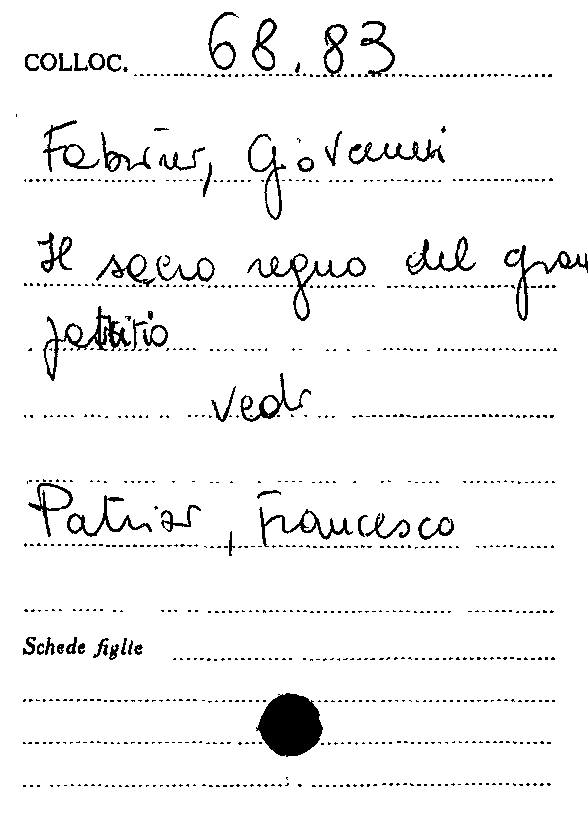 COLLOC. 68.83
Fabrini, Giovanni
Il sacro regno del gran
patritio
vedi
Patrizi, Francesco
Schede figlie